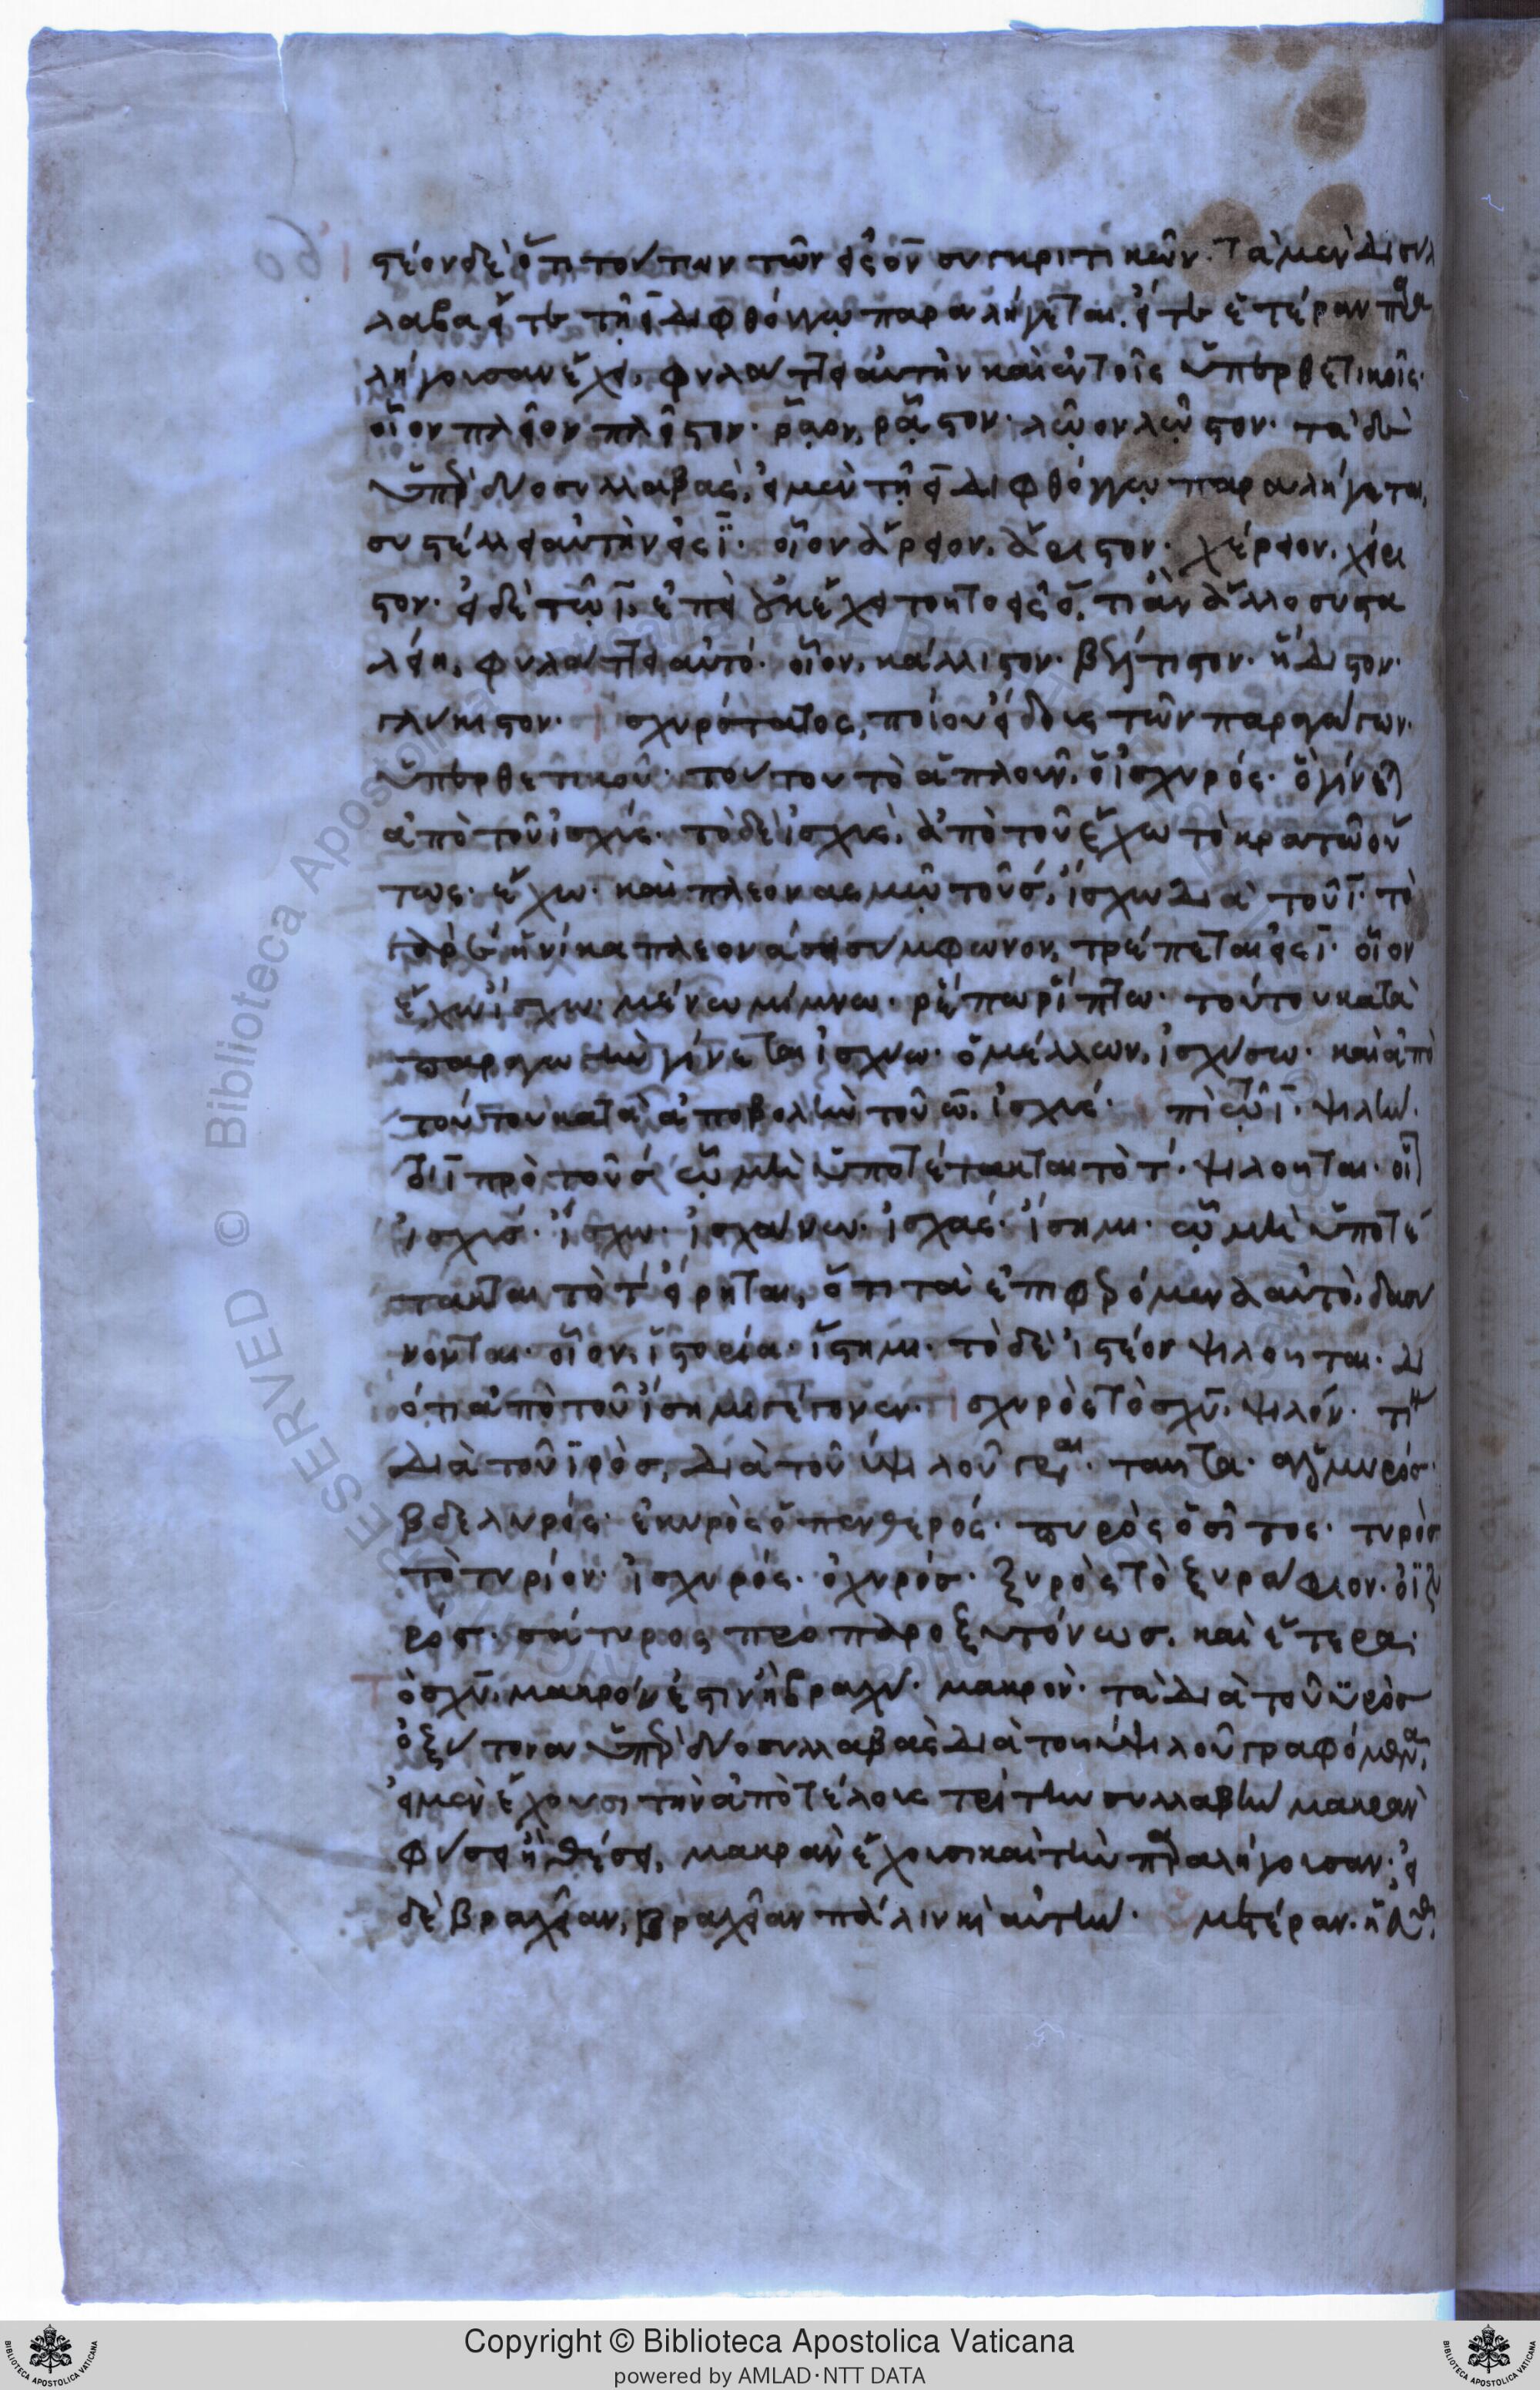 στέον δὲ ὅτι τούτων τῶν εἰς ον συγκριτικῶν. τὰ μὲν δισύλ
λαβα εἴτε τῇ ει διφθόγγῳ παραλήγεται, εἴτε ἑτέραν παρα
λήγουσαν ἔχει, φυλάττει αὐτὴν καὶ ἐν τοῖς ὑπερθετικοῖς.
οἷον πλεῖον πλεῖστον. ῥᾷον, ῥᾷστον. λῷον λῷστον. τὰ δὲ
ὑπὲρ δύο συλλαβὰς, εἰ μὲν τῇ ει διφθόγγῳ παραλήγεται,
συστέλλει αὐτὴν εἰς ϊ. οἷον ἄρειον, ἄριστον. χέρειον, χέρι
στον. εἰ δὲ τῷ ι, ἐπεὶ οὐκ ἔχει τοῦτο εἰς ὅ, τι ἂν ἄλλο συστα
λείη, φυλάττει αὐτό. οἷον, κάλλιστον. βέλτιστον. ἥδιστον.
γλύκιστον. σχυρότατος, ποῖον εἶδους τῶν παραγώγων.
ὑπερθετικοῦ. τούτου τὸ ἁπλοῦν, ὁ ἰσχυρός. ὃ γίνεται
ἀπὸ τοῦ ἰσχύς. τὸ δὲ ἰσχύς, ἀπὸ τοῦ ἔχω τὸ κρατῶ οὕ
τως. ἔχω. καὶ πλεονασμῷ τοῦ σ, ἴσχω διὰ τοῦ ι. τὸ
γὰρ ε ἡνίκα πλεονάσει σύμφωνον, τρέπεται εἰς ι. οἷον
ἔχω ἴσχω. μένω μίμνω. ῥέπω ῥίπτω. τούτου κατὰ
παραγωγὴν γίνεται ἰσχύω. ὁ μέλλων, ἰσχύσω. καὶ ἀπὸ
τούτου κατὰ ἀποβολὴν τοῦ ω, ἰσχύς. τὸ ι. ψιλόν.
τὸ ι πρὸ τοῦ σ ᾧ μὴ ὑποτέτακται τὸ τ, ψιλοῦται. οἷον
ἰσχύς. ἴσχω. ἰσχαίνω. ἰσχάς. ἴσημι. ᾧ μὴ ὑποτέ
τακται τὸ τ εἴρηται, ὅτι τὰ ἐπιφερόμενα αὐτὸ, δασύ
νονται. οἷον, ἱστορία. ἵστημι. τὸ δὲ ἰστέον ψιλοῦται. δι
ότι ἀπὸ τοῦ ἴσημι γέγονεν. σχυρὸς τὸ σχυ, ψιλόν. τὰ
διὰ τοῦ ϋρος, διὰ τοῦ υ ψιλοῦ γράφεται. ταῦτα. ἁλμυρός.
βδελυρός. ἑκυρὸς ὁ πενθερός. πυρὸς ὁ σῖτος. τυρὸς
τὸ τυρίον. ἰσχυρός. ὀχυρός. ξυρὸς τὸ ξυράφιον. ὀϊζυ
ρός. σάτυρος προπαροξυτόνως. καὶ ἕτερα.
Τὸ σχυ, μακρόν ἐστιν ἢ βραχύ. μακρόν. τὰ διὰ τοῦ υρος
ὀξύτονα ὑπὲρ δύο συλλαβὰς διὰ τοῦ υ ψιλοῦ γραφόμενα,
εἰ μὲν ἔχουσι τὴν ἀπὸ τέλους τρίτην συλλαβὴν μακρὰν
φύσει ἢ θέσει, μακρὰν ἔχουσι καὶ τὴν παραλήγουσαν. εἰ
δὲ βραχεῖαν, βραχεῖαν πάλιν καὶ αὐτήν.